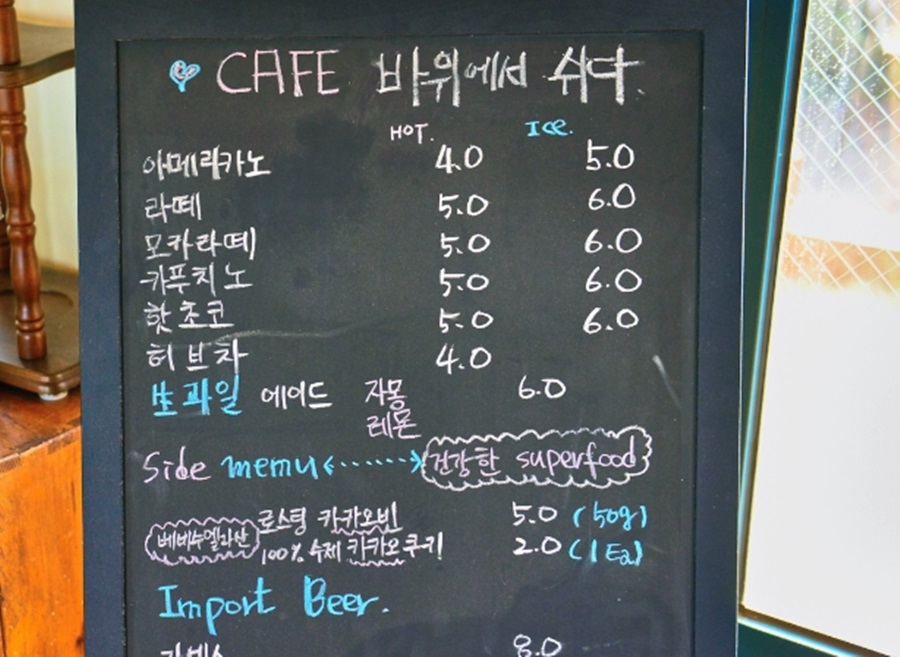 CAFE 바위에서 쉬다.
HOT. Ice.
아메리카노 4.0 5.0
라떼 5.0 6.0
모카라떼 5.0 6.0
카푸치노 5.0 6.0
핫초코 5.0 6.0
허브차 4.0
생과일 에이드 자몽 6.0
레몬
Side memu 건강한 superfood
로스팅 카카오빈 5.0 (50g)
베네수엘라산 100% 수제 카카오쿠키 2.0 (1 Ea)
Import Beer.
8.0